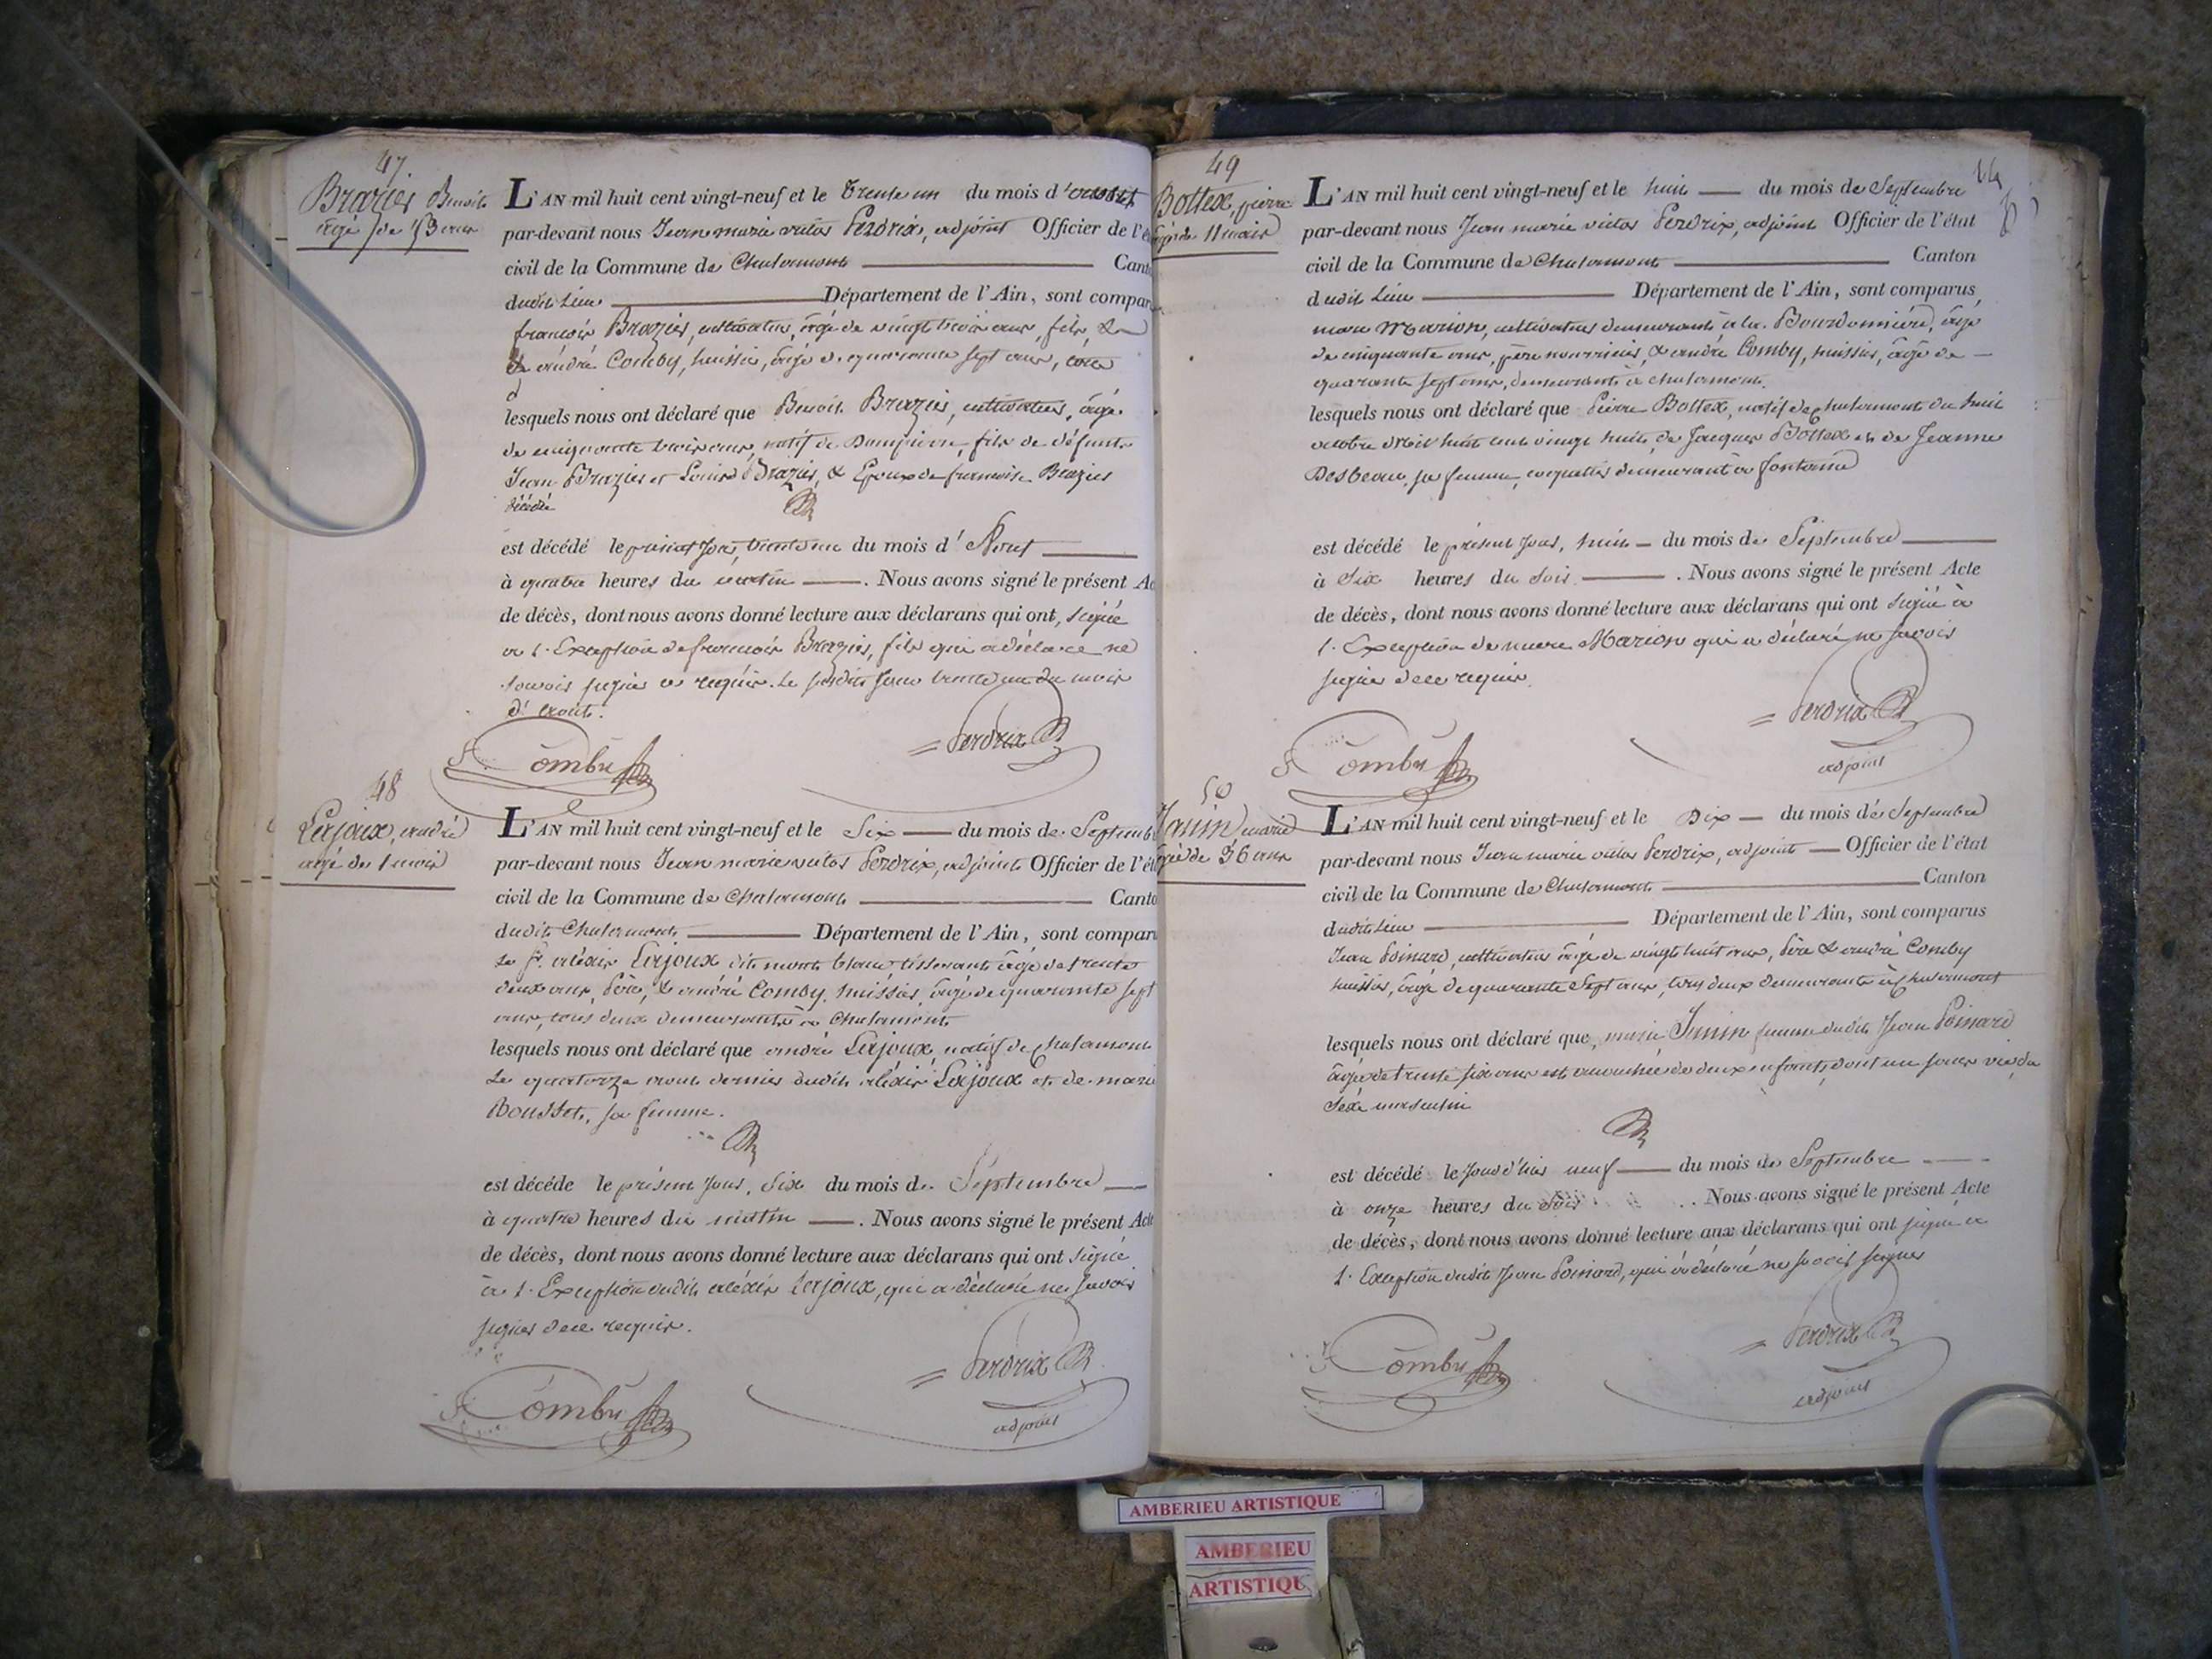 47
Brazier Benoit
âgé de 53 ans
L'AN mil huit cent vingt-neuf et le trente un du mois d'aoust
par-devant nous Jean marie victor Perdrix, adjoint Officier de l'é
civil de la Commune de Chalamont Canto
dudit Lieu Département de l'Ain, sont compar
françois Brazier, cultivateur, âgé de vingt trois ans, fils, &
andré Comby, huissier, âgé de quarante sept ans,
lesquels nous ont déclaré que Benoit Brazier, cultivateur, âgé
de cinquante trois ans, natif de Dompierre, fils de défunts
Jean Brazier et Louise Brazier, & Epoux de françoise Brazier
décédé
est décédé le présent Jour, trente un du mois d'Aout
à quatre heures du matin . Nous avons signé le présent Ac
de décès, dont nous avons donné lecture aux déclarans qui ont, signé
a l'Exception de françois Brazier, fils qui a déclaré ne
savoir signer ce requis. Le susdit Jour trente un du mois
d'aout.
Comby
Perdrix
48
Lerjoux, andré
âgé de 1 mois
L'AN mil huit cent vingt-neuf et le Six du mois de Septemb
par-devant nous Jean marie victor Perdrix, adjoint Officier de l'ét
civil de la Commune de Chalamont Canto
dudit Chalamont Département de l'Ain, sont compar
Le Sr. aléxis Lerjoux dit mont blanc, tisserant âgé de trente
deux ans, Père, & andré Comby, huissier, âgé de quarante sept
ans, tous deux demeurants a Chalamont
lesquels nous ont déclaré que andré Lerjoux, natif de Chalamont
Le quatorze aout dernier dudit aléxis Lerjoux et de marie
Rousset, sa femme.
est décédé le présent Jour, Six du mois de Septembre
à quatre heures du matin . Nous avons signé le présent Acte
de décès, dont nous avons donné lecture aux déclarans qui ont signé
a l'Exception dudit aléxis Lerjoux, qui a déclaré ne savoir
signer de ce requis.
Comby
Perdrix
adjoint
49
Bottex, pierre
âgé de 11 mois
L'AN mil huit cent vingt-neuf et le huit du mois de Septembre
par-devant nous Jean marie victor Perdrix, adjoint Officier de l'état
civil de la Commune de Chalamont Canton
dudit Lieu Département de l'Ain, sont comparus
marc Marion, cultivateur demeurant à la Bourdonnière, âgé
de cinquante ans, père nourricier, & andré Comby, huissier, âgé de
quarante sept ans, demeurants à chalamont.
lesquels nous ont déclaré que Pierre Bottex, natif de Chalamont du huit
octobre dix huit cent vingt huit, de Jacques Bottex et de Jeanne
Desbeaux, sa femme, coquetier demeurant a fontaine
est décédé le présent Jour, huit du mois de Septembre
à Six heures du Soir . Nous avons signé le présent Acte
de décès, dont nous avons donné lecture aux déclarans qui ont signé à
l'Exception de marc Marion qui a déclaré ne savoir
signer de ce requis
Comby
Perdrix
adjoint
50
Janin marie
âgé de 36 ans
L'AN mil huit cent vingt-neuf et le Dix du mois de Septembre
par-devant nous Jean marie victor Perdrix, adjoint Officier de l'état
civil de la Commune de Chalamont Canton
dudit Lieu Département de l'Ain, sont comparus
Jean Poinard, cultivateur âgé de vingt huit ans, Père & andré Comby
huissier, âgé de quarante Sept ans, tous deux demeurants à Chalamont
lesquels nous ont déclaré que, marie Janin femme dudit Jean Poinard
âgée de trente six ans est accouchée de deux enfants, dont un sans vie, du
Séxe masculin
est décédé le Jour d'hier neuf du mois de Septembre
à onze heures du Soir . Nous avons signé le présent Acte
de décès, dont nous avons donné lecture aux déclarans qui ont signé a
l'Exception dudit Jean Poinard, qui a déclaré ne savoir signer
Comby
Perdrix
adjoint
AMBERIEU ARTISTIQUE
AMBERIEU
ARTISTIQU